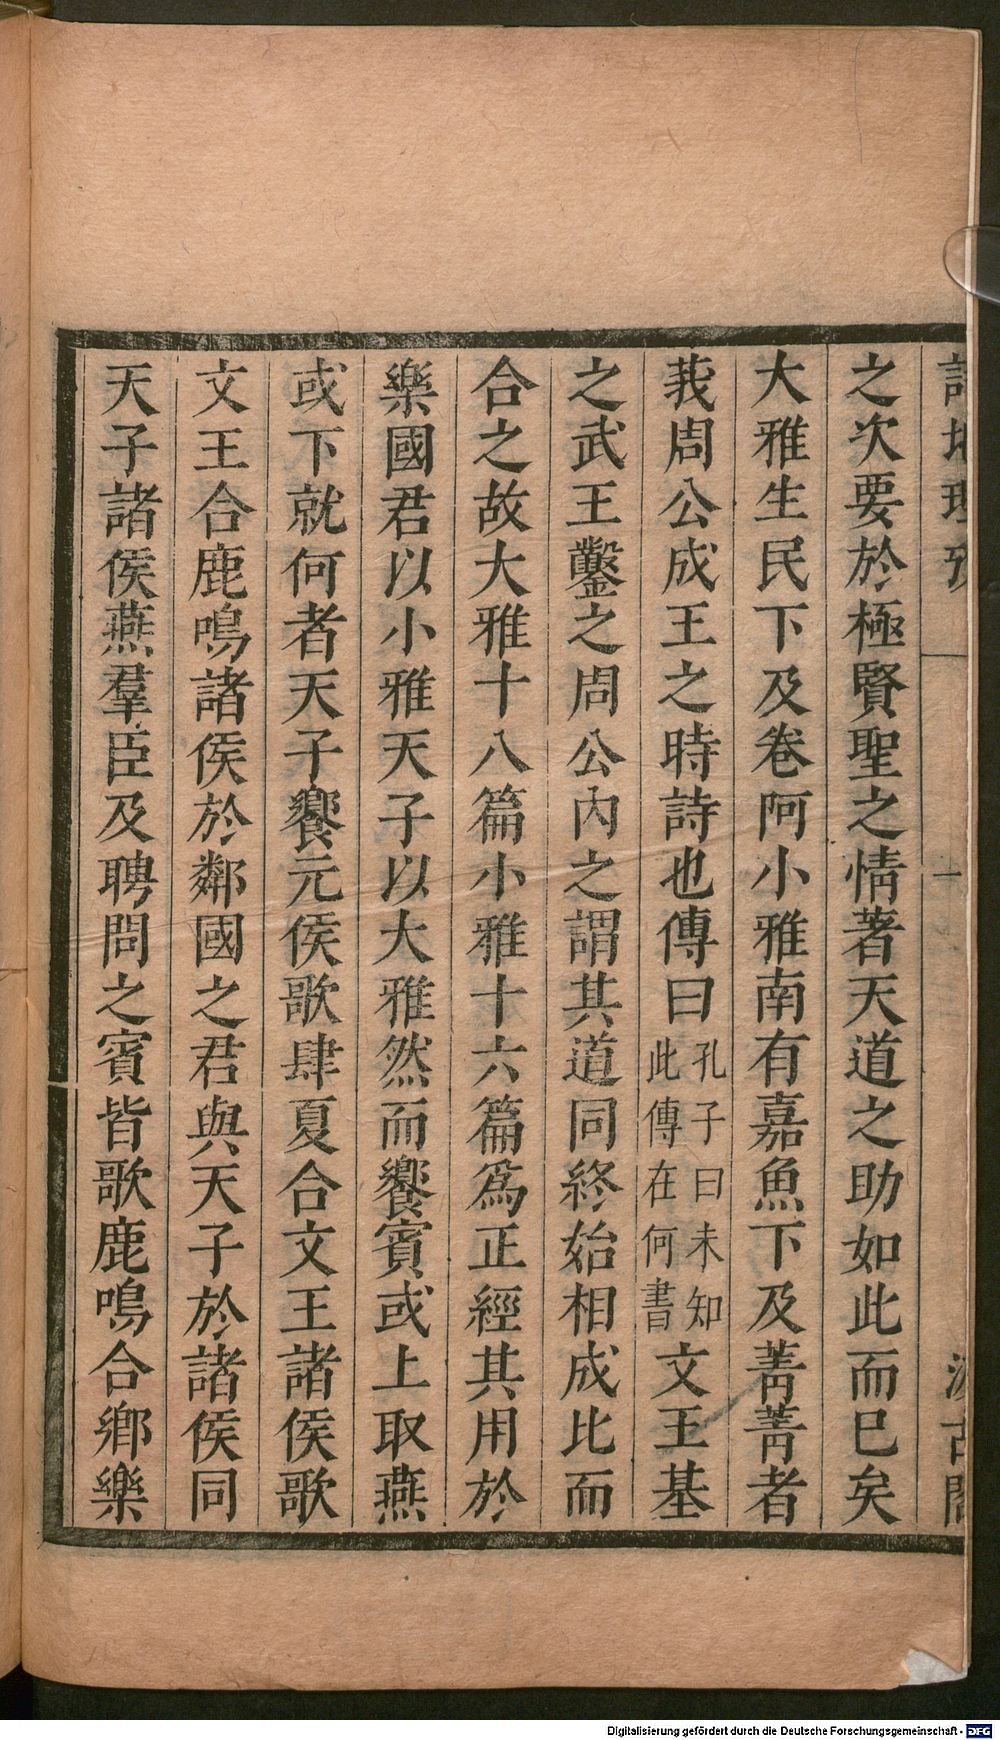 之次要於極賢聖之情著天道之助如此而已矣
大雅生民下及卷阿小雅南有嘉魚下及菁菁者
莪周公成王之時詩也傳曰孔子曰未知此傳在何書文王基
之武王鑿之周公內之謂其道同終始相成比而
合之故大雅十八篇小雅十六篇爲正經其用於
樂國君以小雅天子以大雅然而饗賓或上取燕
或下就何者天子饗元侯歌肆夏合文王諸侯歌
文王合鹿鳴諸侯於鄰國之君與天子於諸侯同
天子諸侯燕羣臣及聘問之賓皆歌鹿鳴合鄉樂
Digitalisierung gefördert durch die Deutsche Forschungsgemeinschaft - DFG